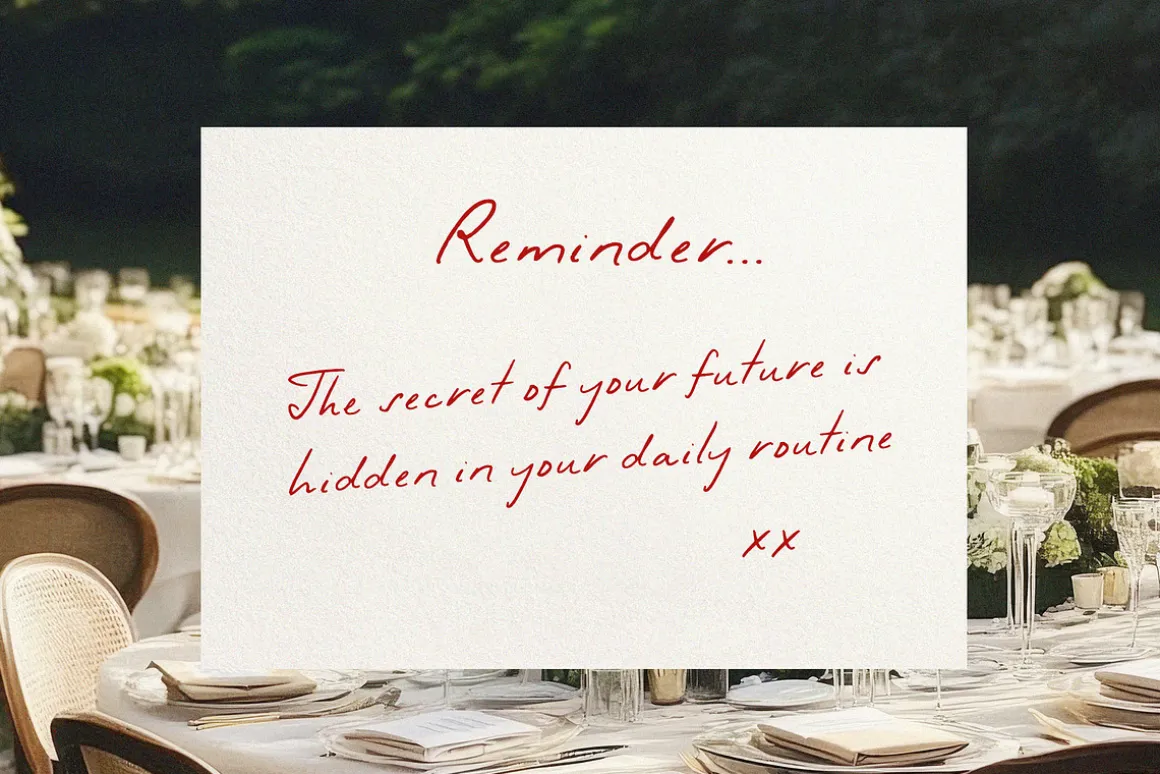 Reminder...
The secret of your future is
hidden in your daily routine
xx